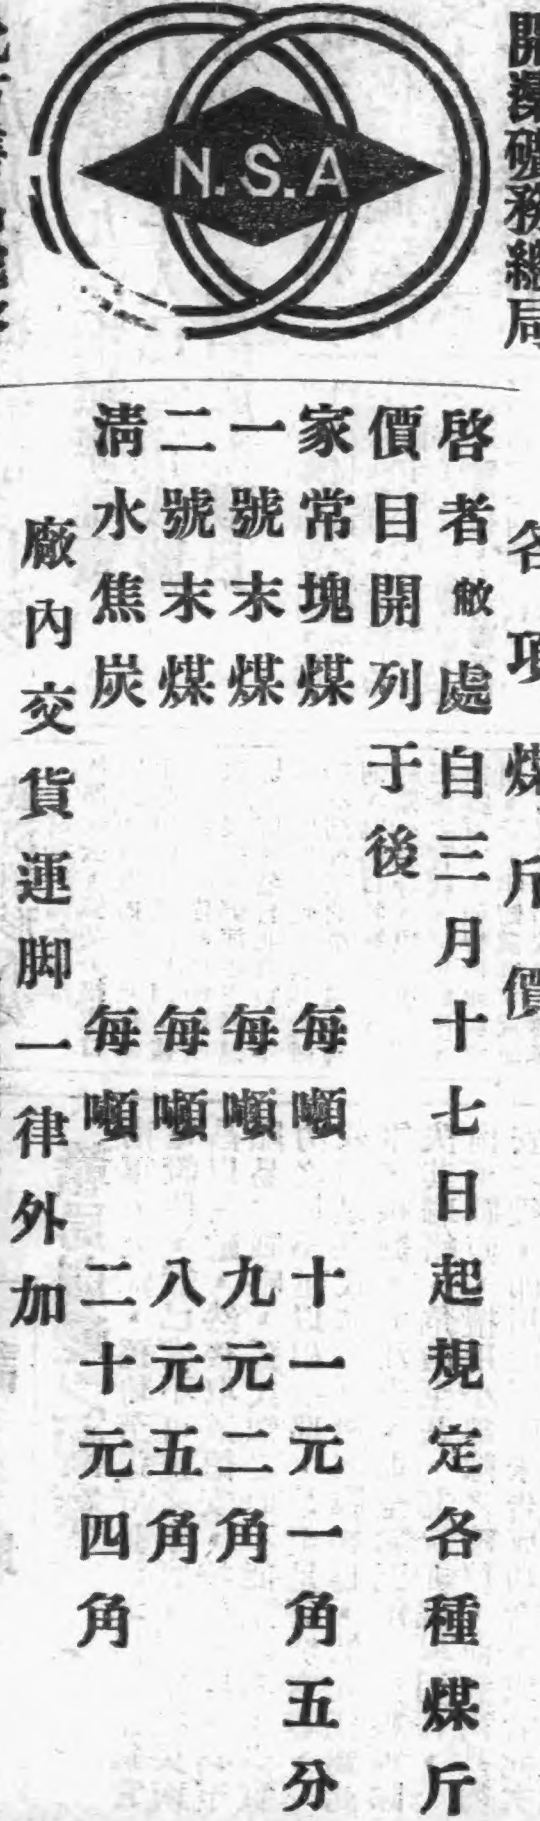 開灤礦務總局
N.S.A
各項煤斤價
啓者敝處自三月十七日起規定各種煤斤
價目開列于後
家常塊煤 每噸 十一元一角五分
一號末煤 每噸 九元二角
二號末煤 每噸 八元五角
淸水焦炭 每噸 二十元四角
廠內交貨運脚一律外加